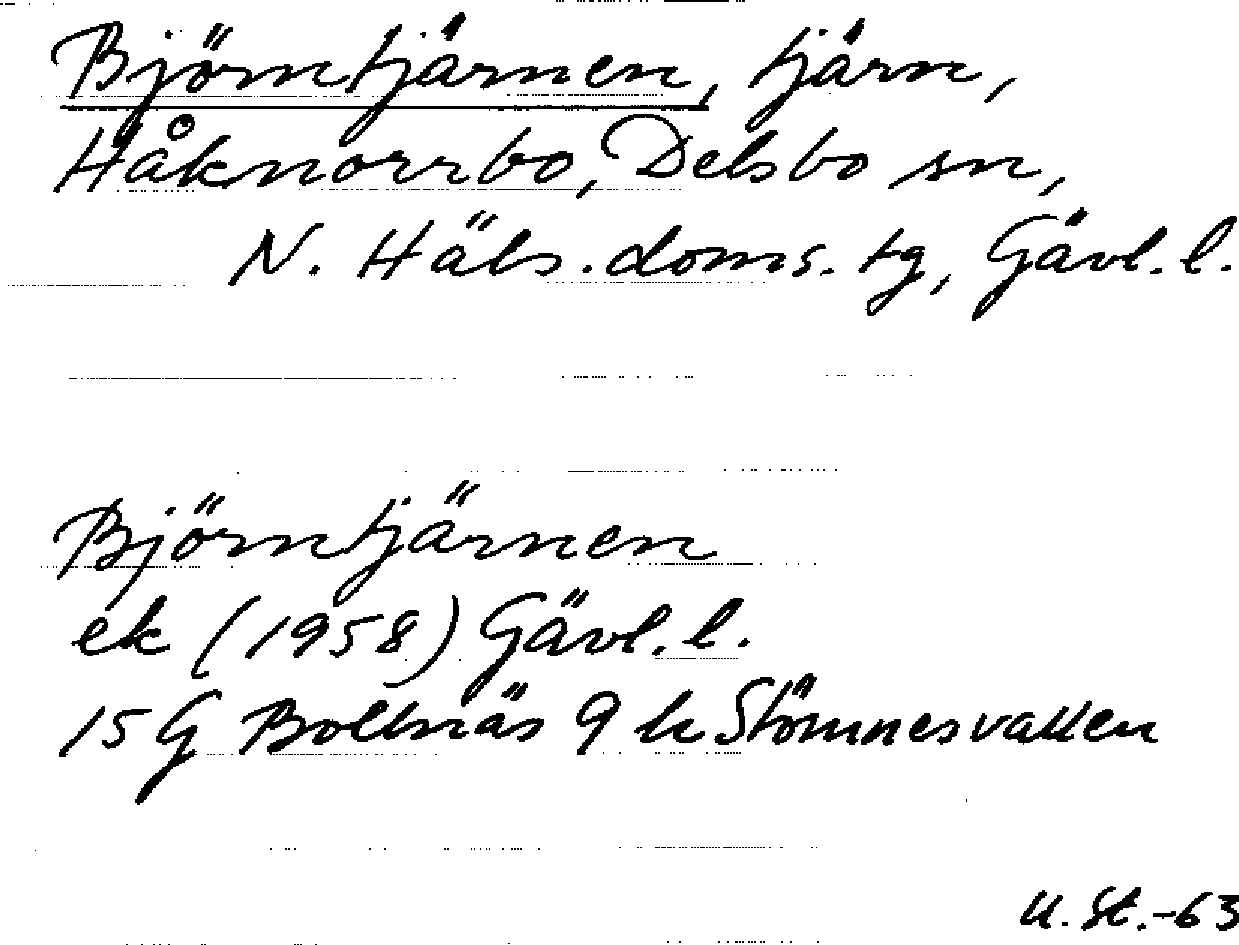 Björntjärnen, tjärn,
Håknorrbo, Delsbo sn,
N. Häls. doms. tg, Gävl. l.
Björntjärnen
ek (1958) Gävl. l.
15 G Bollnäs 9 h Stömnesvallen
U. St. -63